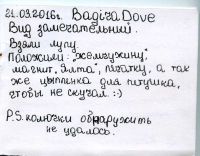 21.09.2016г. Bagira Dove
Вид замечательный.
Взяли лупу.
Положили: "жемчужину",
магнит, "Ялта", печатку, а так
же цыпленка для петушка,
чтобы не скучал. :-)
P.S. колючки обнаружить
не удалось.